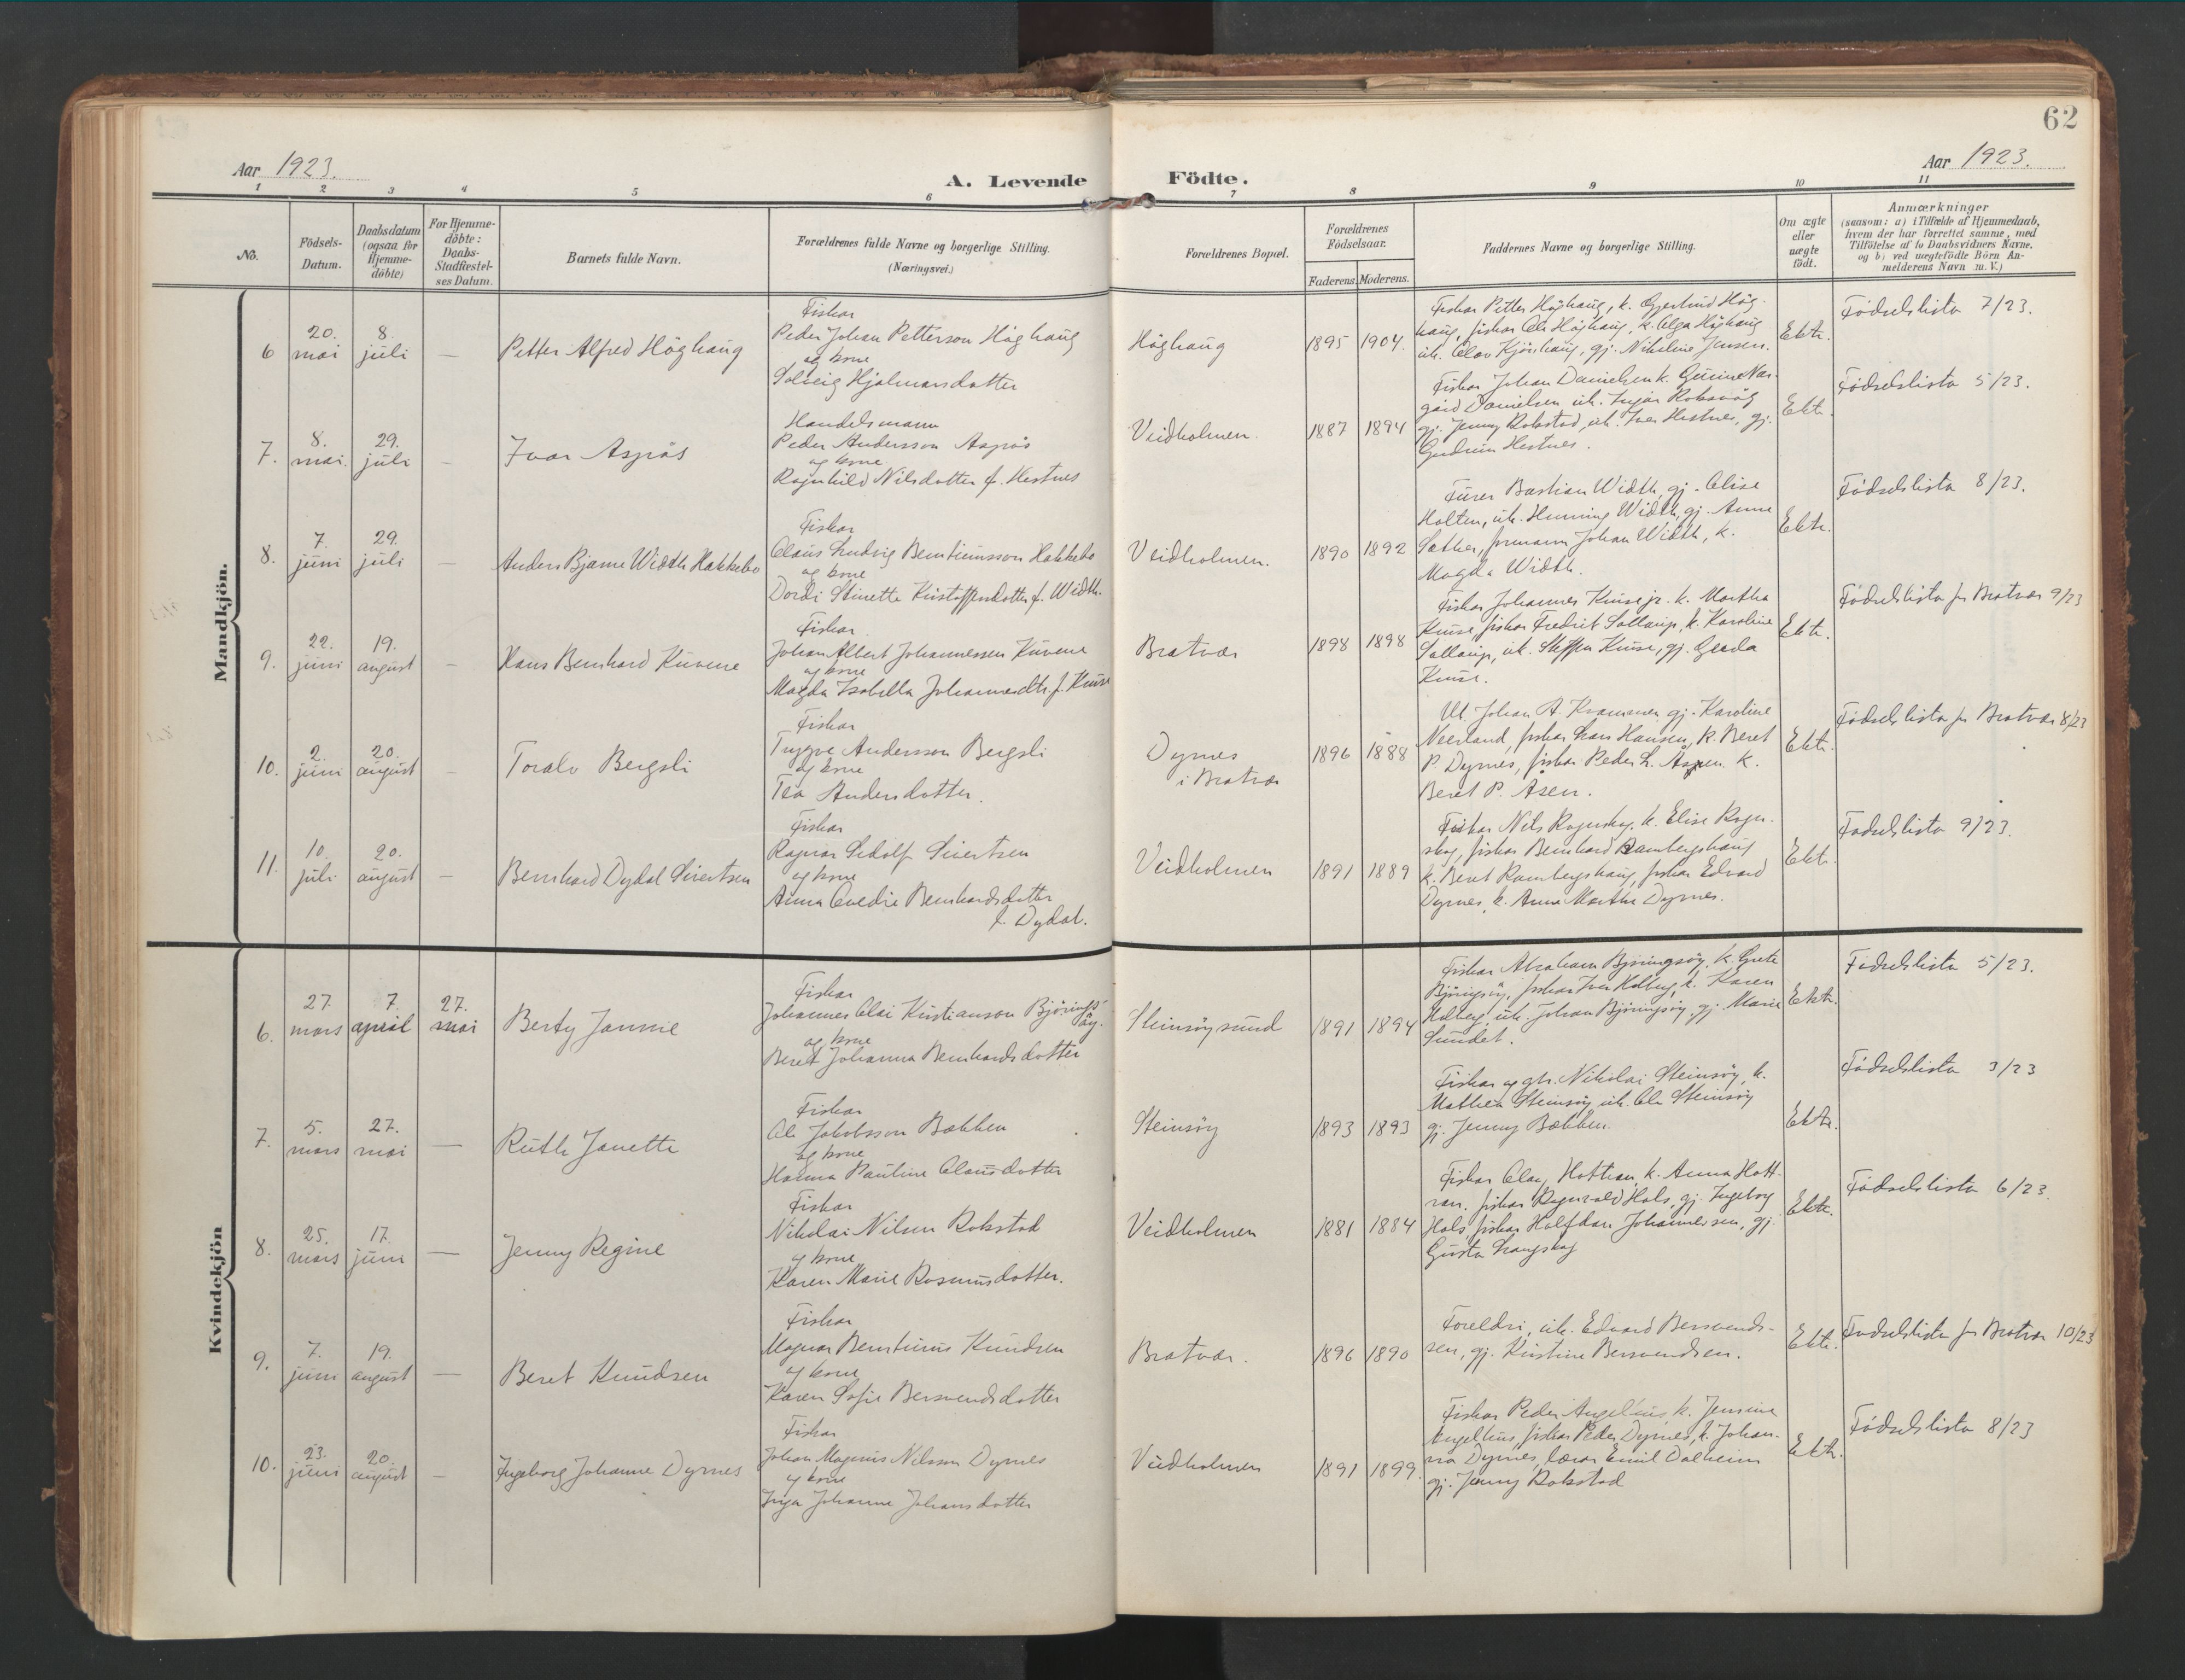 62
Aar 1923.
Aar 1923.
A. Levende Födte.
1 2 3 4 5 6 7 8 9 10 11
No.
Födsels-
Datum.
Daabsdatum
(ogsaa for
Hjemme-
döbte)
For Hjemme-
döbte:
Daabs-
Stadfæstel-
ses Datum.
Barnets fulde Navn.
Forældrenes fulde Navne og borgerlige Stilling.
(Næringsvei.)
Forældrenes Bopæl.
Forældrenes
Födselsaar.
Faderens. Moderens.
Faddernes Navne og borgerlige Stilling.
Om ægte
eller
uægte
födt.
Anmærkninger
(saasom: a) i Tilfælde af Hjemmedaab,
hvem der har forrettet samme, med
Tilföielse af to Daabsvidners Navne,
og b) ved uægtefödte Börn An-
melderens Navn m. V.)
Mandkjön.
6
20.
mai
8.
juli
—
Petter Alfred Höghaug
Fiskar
Peder Johan Petterson Höghaug
og kone
Solveig Hjalmarsdatter
Höghaug
1895 1904.
Fiskar Petter Höghaug, k. Gjertrud Hög-
haug, fiskar Ole Höghaug, k. Olga Höghaug
uk. Olav Kjönhaug, gj. Nikoline Jensen.
Ekte.
Födselslista 7/23.
7.
8.
mai.
29.
juli
—
Ivar Aspås
Handelsmann
Peder Andersson Aspås
og kone
Ragnhild Nilsdatter f. Hestnes
Veidholmen.
1887 1894
Fiskar Johan Danielsen k. Gurine Nas-
gård Danielsen uk. Ingar Rokavåg
gj. Jenny Rokstad, uk. Iver Hestnes, gj.
Gudrun Hestnes.
Ekte.
Födselslista 5/23.
8.
7.
juni
29.
juli
—
Anders Bjarne Width Hakkebo
Fiskar
Claus Ludvig Berntinusson Hakkebo
og kone
Dordi Stinette Kristoffersdatter f. Width.
Veidholmen.
1890 1892
Furer Bastian Width, gj. Olise
Holten, uk. Henning Width, gj. Anna
Sæther, formann Johan Width, k.
Magda Width.
Ekte.
Födselslista 8/23.
9.
22.
juni
19.
august
—
Hans Bernhard Kuvene
Fiskar
Johan Albert Johannessen Kuvene
og kone
Magda Isabella Johannesdtr. f. Knise
Bratvær
1898 1898
Fiskar Johannes Knise jr. k. Martha
Knise, fiskar Fredrik Sollaup, k. Karoline
Sollaup, uk. Steffen Knise, gj. Gerda
Knise.
Ekte.
Födselslista for Bratvær 9/23
10.
2.
juni
20.
august
—
Toralv Bergsli
Fiskar
Trygve Andersson Bergsli
og kone
Tea Andersdatter.
Dyrnes
i Bratvær
1896 1888
Uk. Johan A. Kramnen gj. Karoline
Neerland, fiskar Lars Hansen, k. Beret
P. Dyrnes, fiskar Peder L. Åspen k.
Beret P. Åsen.
Ekte.
Födselslista for Bratvær 8/23
11.
10.
juli
20.
august
—
Bernhard Dydal Sivertsen
Fiskar
Ragnar Sidolf Sivertsen
og kone
Anna Ovedie Bernhardsdatter
f. Dydal.
Veidholmen
1891 1889
Fiskar Nils Ragnskog, k. Elise Ragn-
skog, fiskar Bernhard Rambergshaug
k. Beret Rambergshaug, fiskar Edvard
Dyrnes, k. Anne Marthe Dyrnes.
Ekte.
Födselslista 9/23.
Kvindekjön
6.
27.
mars
7.
april
27.
mai
Berty Jannie
Fiskar
Johannes Olai Kristianson Bjørings-
øy.
og kone
Beret Johanna Bernhardsdatter
Steinsöysund
1891 1894
Fiskar Abraham Björingsöy, k. Grete
Björingsöy, fiskar Iver Holberg, k. Karen
Holberg, uk. Johan Björingsöy, gj. Marie
Sundet.
Ekte.
Födselslista 5/23.
7.
5.
mars
27.
mai
—
Ruth Janette
Fiskar
Ole Jakobsson Bækken
og kone
Hanna Pauline Olausdatter
Steinsöy
1893 1893
Fiskar og gbr. Nikolai Steinsöy, k.
Mathea Steinsöy, uk. Ole Steinsöy
gj. Jenny Bækken.
Ekte.
Födselslista 3/23
8.
25.
mars
17.
juni
—
Jenny Regine
Fiskar
Nikolai Nilsen Rokstad
og kone
Karen Marie Rasmusdatter.
Veidholmen
1881 1884
Fiskar Olay Hottran, k. Anna Hott-
ran, fiskar Ragnvald Hals, gj. Ingeborg
Hals, fiskar Halfdan Johannessen, gj.
Gusta Langskog
Ekte.
Födselslista 6/23.
9.
7.
juni
19.
august
—
Beret Knudsen
Fiskar
Magnar Berntinus Knudsen
og kone
Karen Sofie Bersvendsdatter
Bratvær.
1896 1890
Foreldri, uk. Edvard Bersvends-
sen, gj. Kristine Bersvendsen.
Ekte.
Födselslista for Bratvær 10/23
10.
23.
juni
20.
august
—
Ingeborg Johanne Dyrnes
Fiskar
Johan Magnus Nilsson Dyrnes
og kone
Inga Johanne Johansdatter
Veidholmen
1891 1899.
Fiskar Peder Angelius, k. Jensine
Angelius, fiskar Peder Dyrnes, k. Johan-
na Dyrnes, lærar Emil Dalheim
gj. Jenny Rokstad
Ekte.
Födselslista 8/23